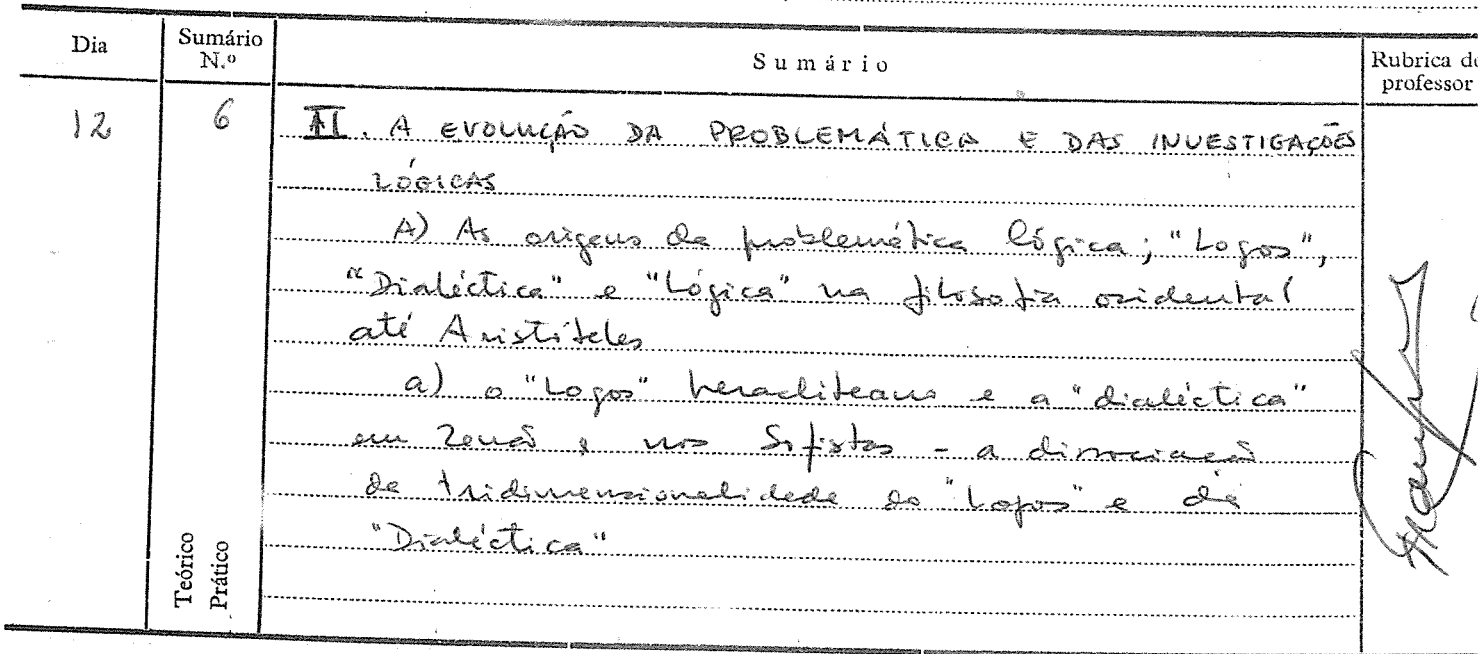 Dia
Sumário N.º
Sumário
Rubrica do professor
12
6
II. A EVOLUÇÃO DA PROBLEMÁTICA E DAS INVESTIGAÇÕES
LÓGICAS
A) As origens da problemática lógica; "Logos",
"Dialéctica" e "Lógica" na filosofia ocidental
até Aristóteles
a) o "Logos" heracliteano e a "dialéctica"
em Zenão e nos Sofistas - a dissociação
da tridimensionalidade do "Logos" e da
"Dialéctica"
Teórico
Prático